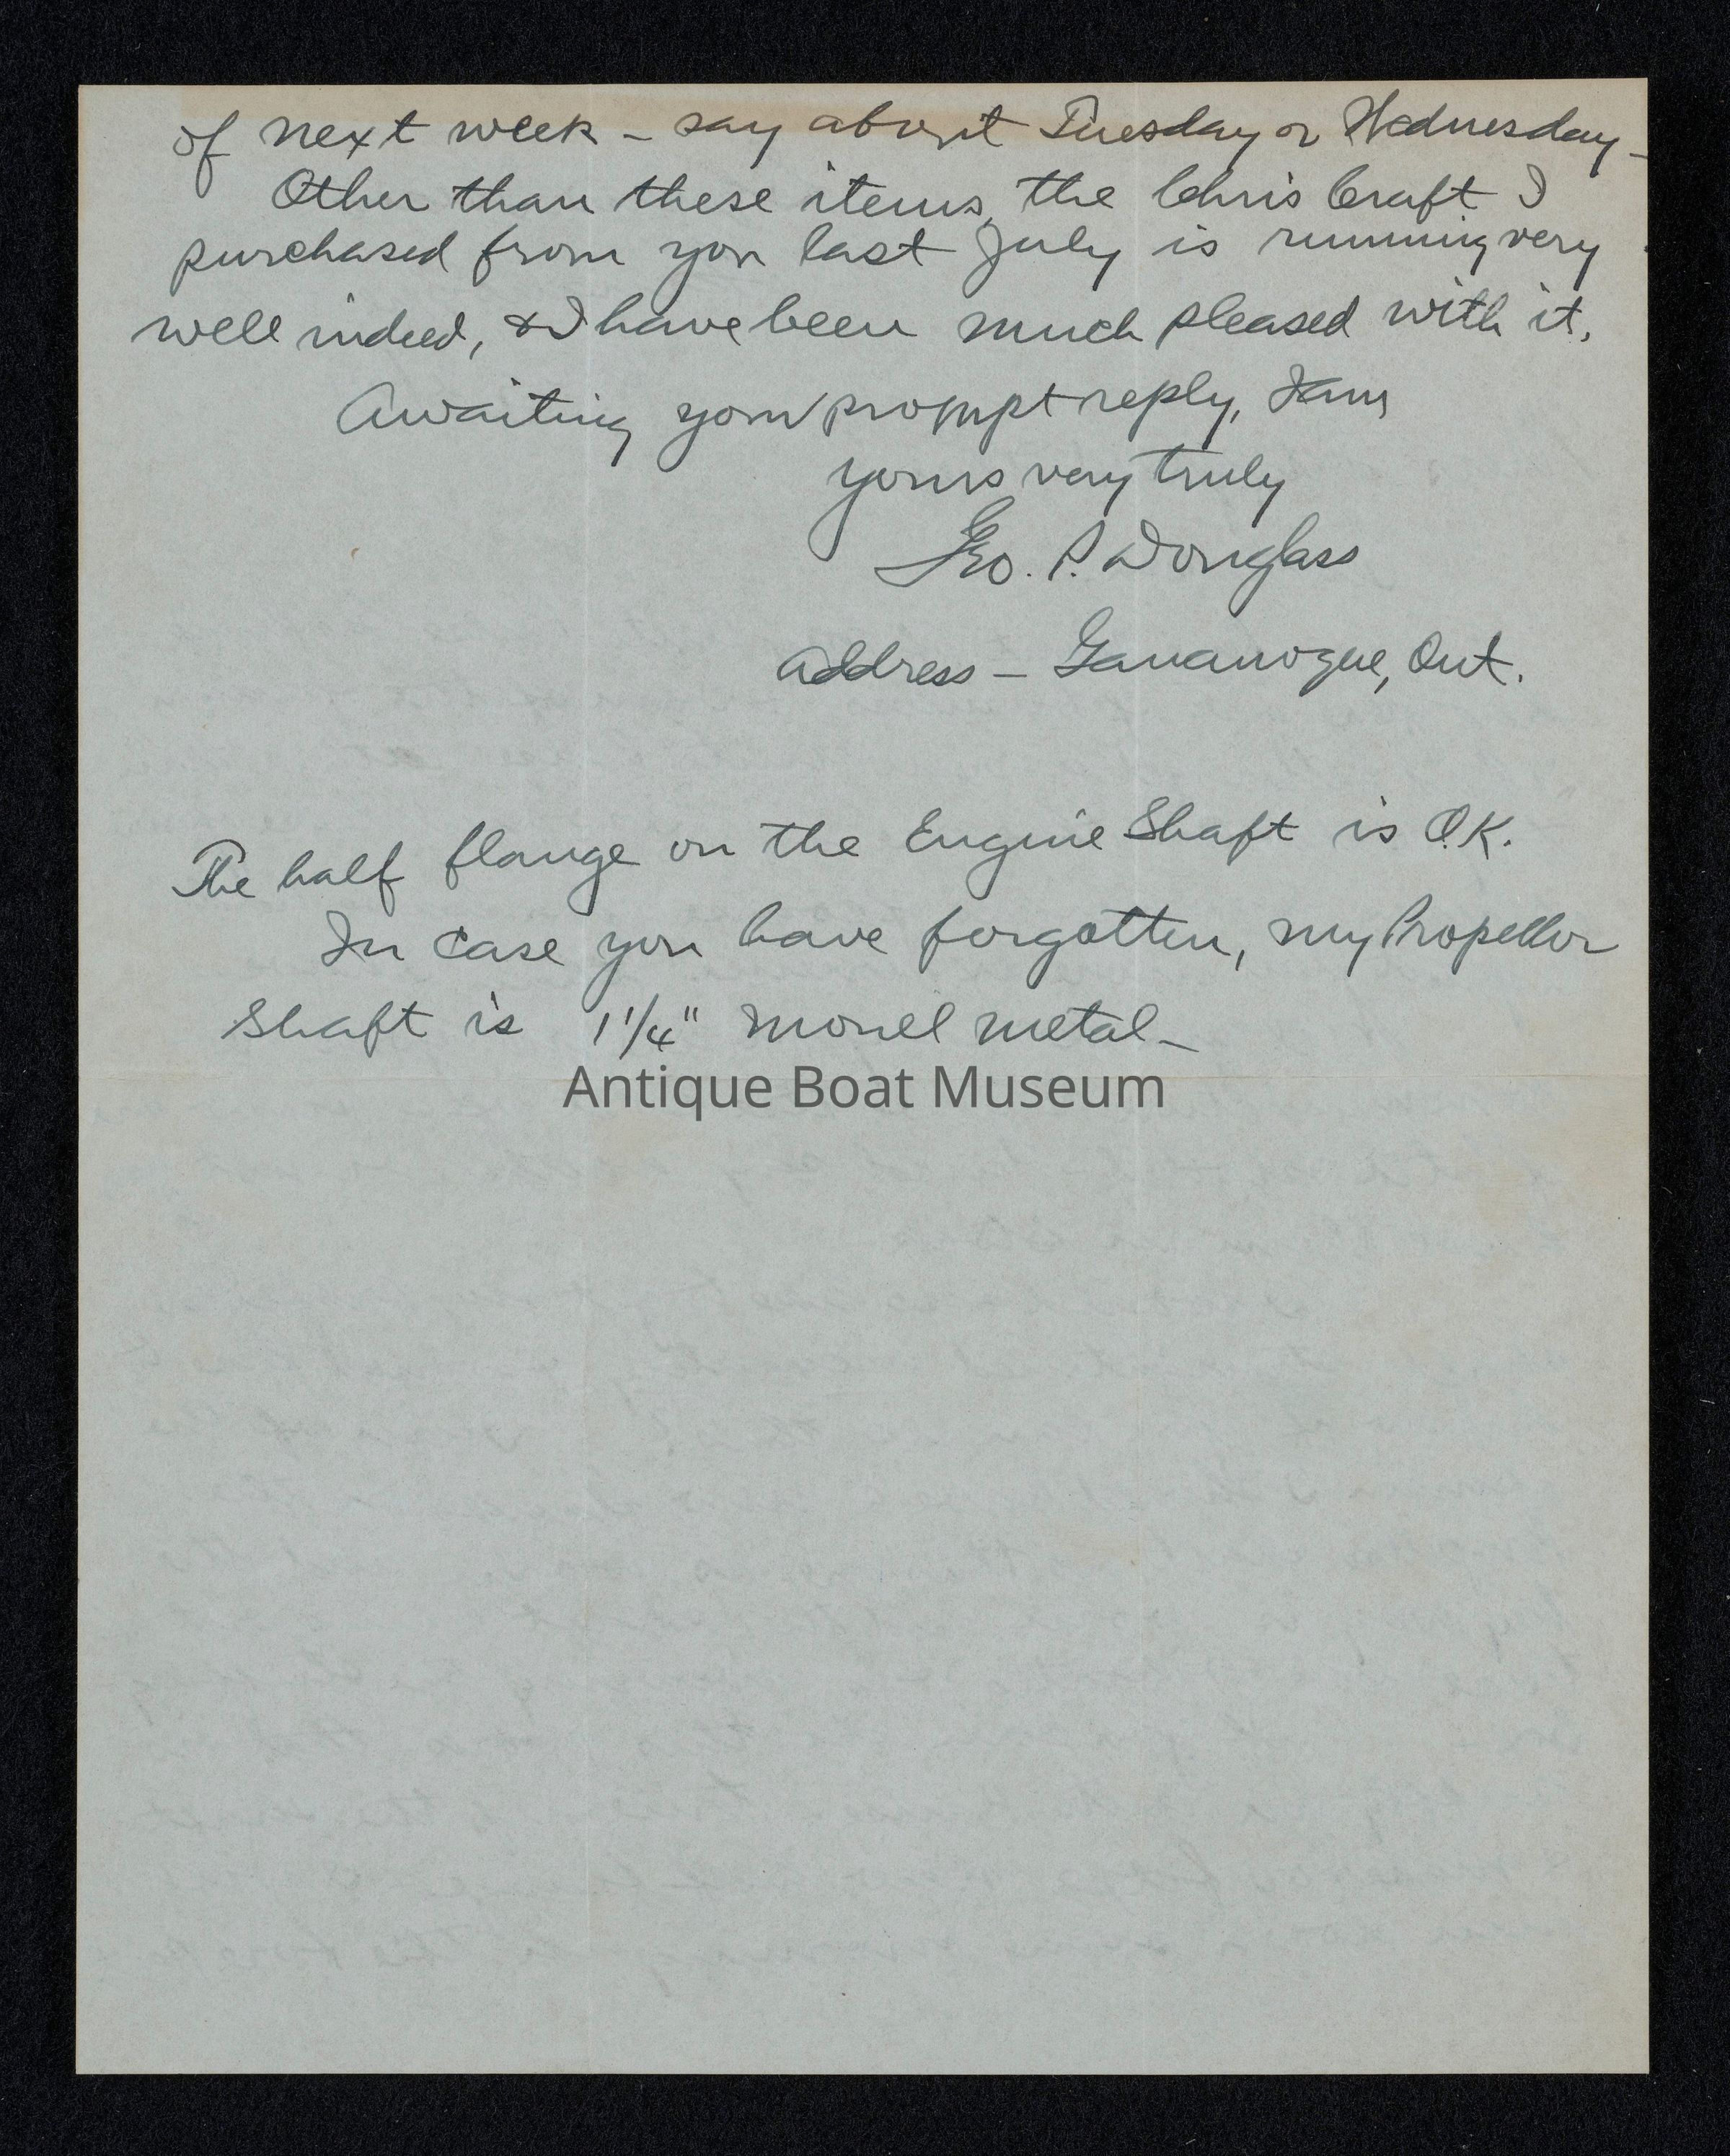 of next week – say about Tuesday or Wednesday –
Other than these items, the Chris Craft I
purchased from you last July is running very
well indeed, & I have been much pleased with it.
Awaiting your prompt reply, I am
yours very truly
Geo. P. Douglass
address – Gananoque, Ont.
The half flange on the Engine Shaft is O.K.
In case you have forgotten, my Propeller
Shaft is 1 1/4" monel metal –
Antique Boat Museum